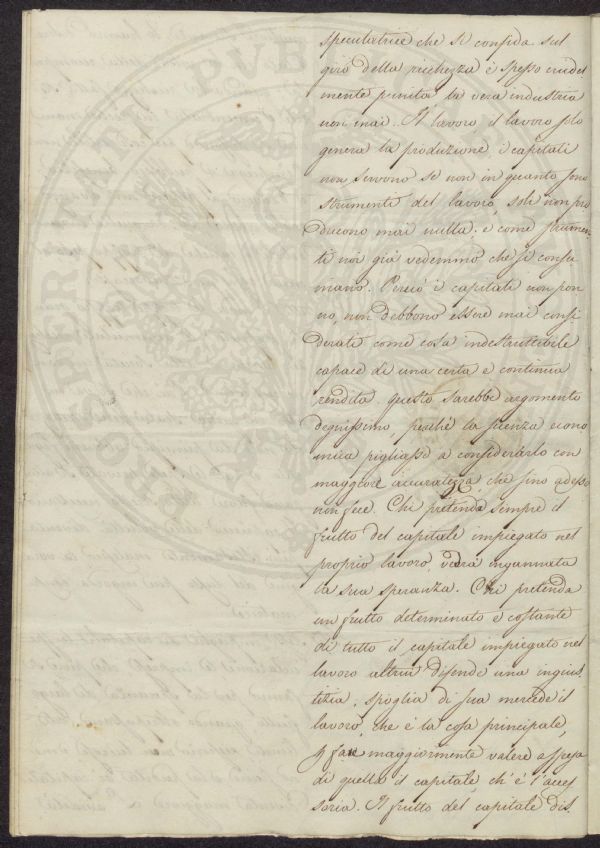 speculatrice che si confida sul
giro della ricchezza è spesso crudel
mente punita, la vera industria
non mai. Il lavoro il lavoro solo
genera la produzione, i capitali
non servono se non in quanto sono
strumenti del lavoro, soli non pro
ducono mai nulla. e come strumen
ti noi già vedemmo che si consu
mano. Perciò i capitali non pon
no, non debbono essere mai consi
derati come cosa indestruttibile
capace di una certa e continua
rendita. questo sarebbe argomento
degnissimo, perché la scienza econo
mica pigliasse a considerarlo con
maggiore accuratezza, che sino adesso
non fece. Chi pretenda sempre il
frutto del capitale impiegato nel
proprio lavoro, vedrà ingannata
la sua speranza. Chi pretenda
un frutto determinato e costante
di tutto il capitale impiegato nel
lavoro altrui difende una ingius
tizia, spoglia di sua mercede il
lavoro, che è la cosa principale,
p far maggiormente valere a spesa
di quella il capitale, ch'è l'acces
soria. Il frutto del capitale dis.
PROSPERITATI PUBL